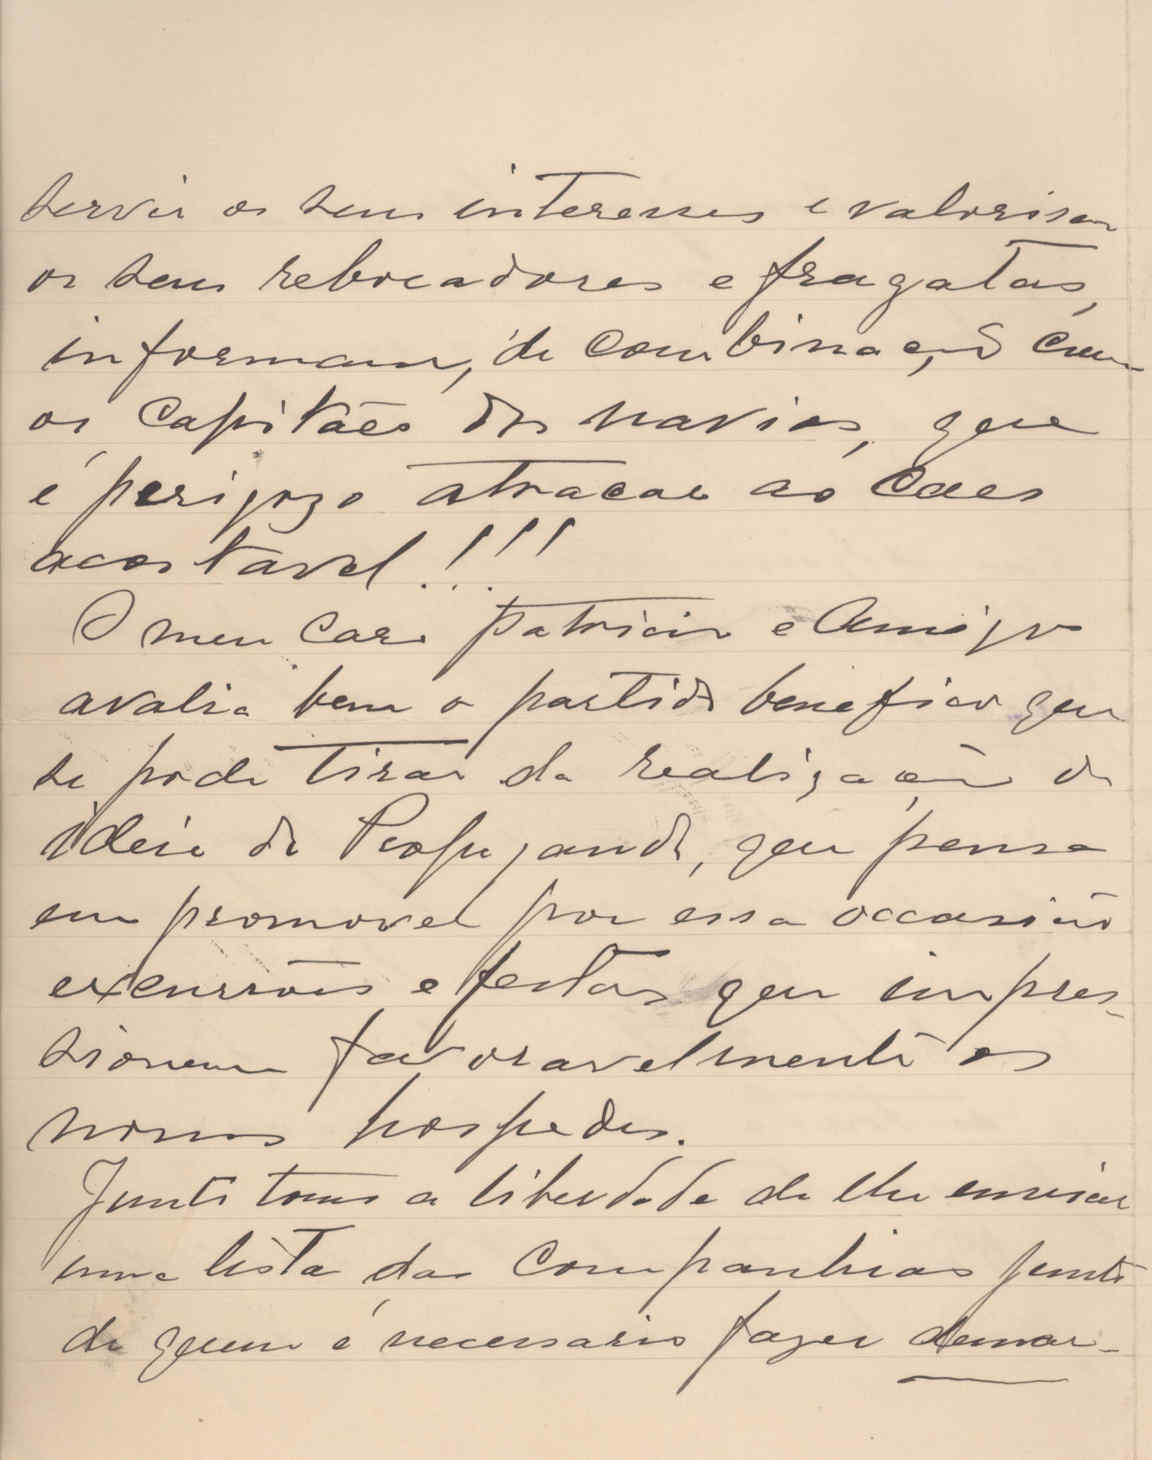 servir os seus interesses e valorisar
os seus rebocadores e fragatas,
informam, de combinação com
os capitães dos navios, que
é perigozo atracar ao Caes
acostavel!!!
O meu caro patricio e Amigo
avalia bem o partido benefico que
se pode tirar da realização da
ideia da Propaganda, que pensa
em promover por essa occasião
excursões e festas que impres-
sionem favoravelmente os
nossos hospedes.
Junto tomo a liberdade de lhe enviar
uma lista das Companhias junto
de quem é necessario fazer demar-